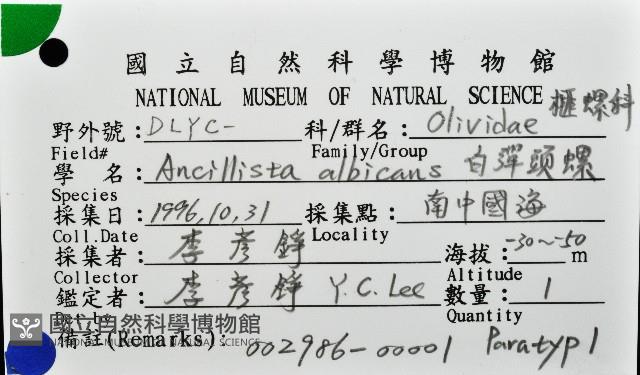 國立自然科學博物館
NATIONAL MUSEUM OF NATURAL SCIENCE 榧螺科
野外號：DLYC- 科/群名：Olividae
Field# Family/Group
學 名：Ancillista albicans 白彈頭螺
Species
採集日：1996,10,31 採集點：南中國海
Coll.Date Locality
採集者：李彥錚 海拔：-30～-50 m
Collector Altitude
鑑定者：李彥錚 Y.C. Lee 數量：1
Quantity
國立自然科學博物館
NATIONAL MUSEUM OF NATURAL SCIENCE
備註(Remarks): 002986-00001 Paratyp1